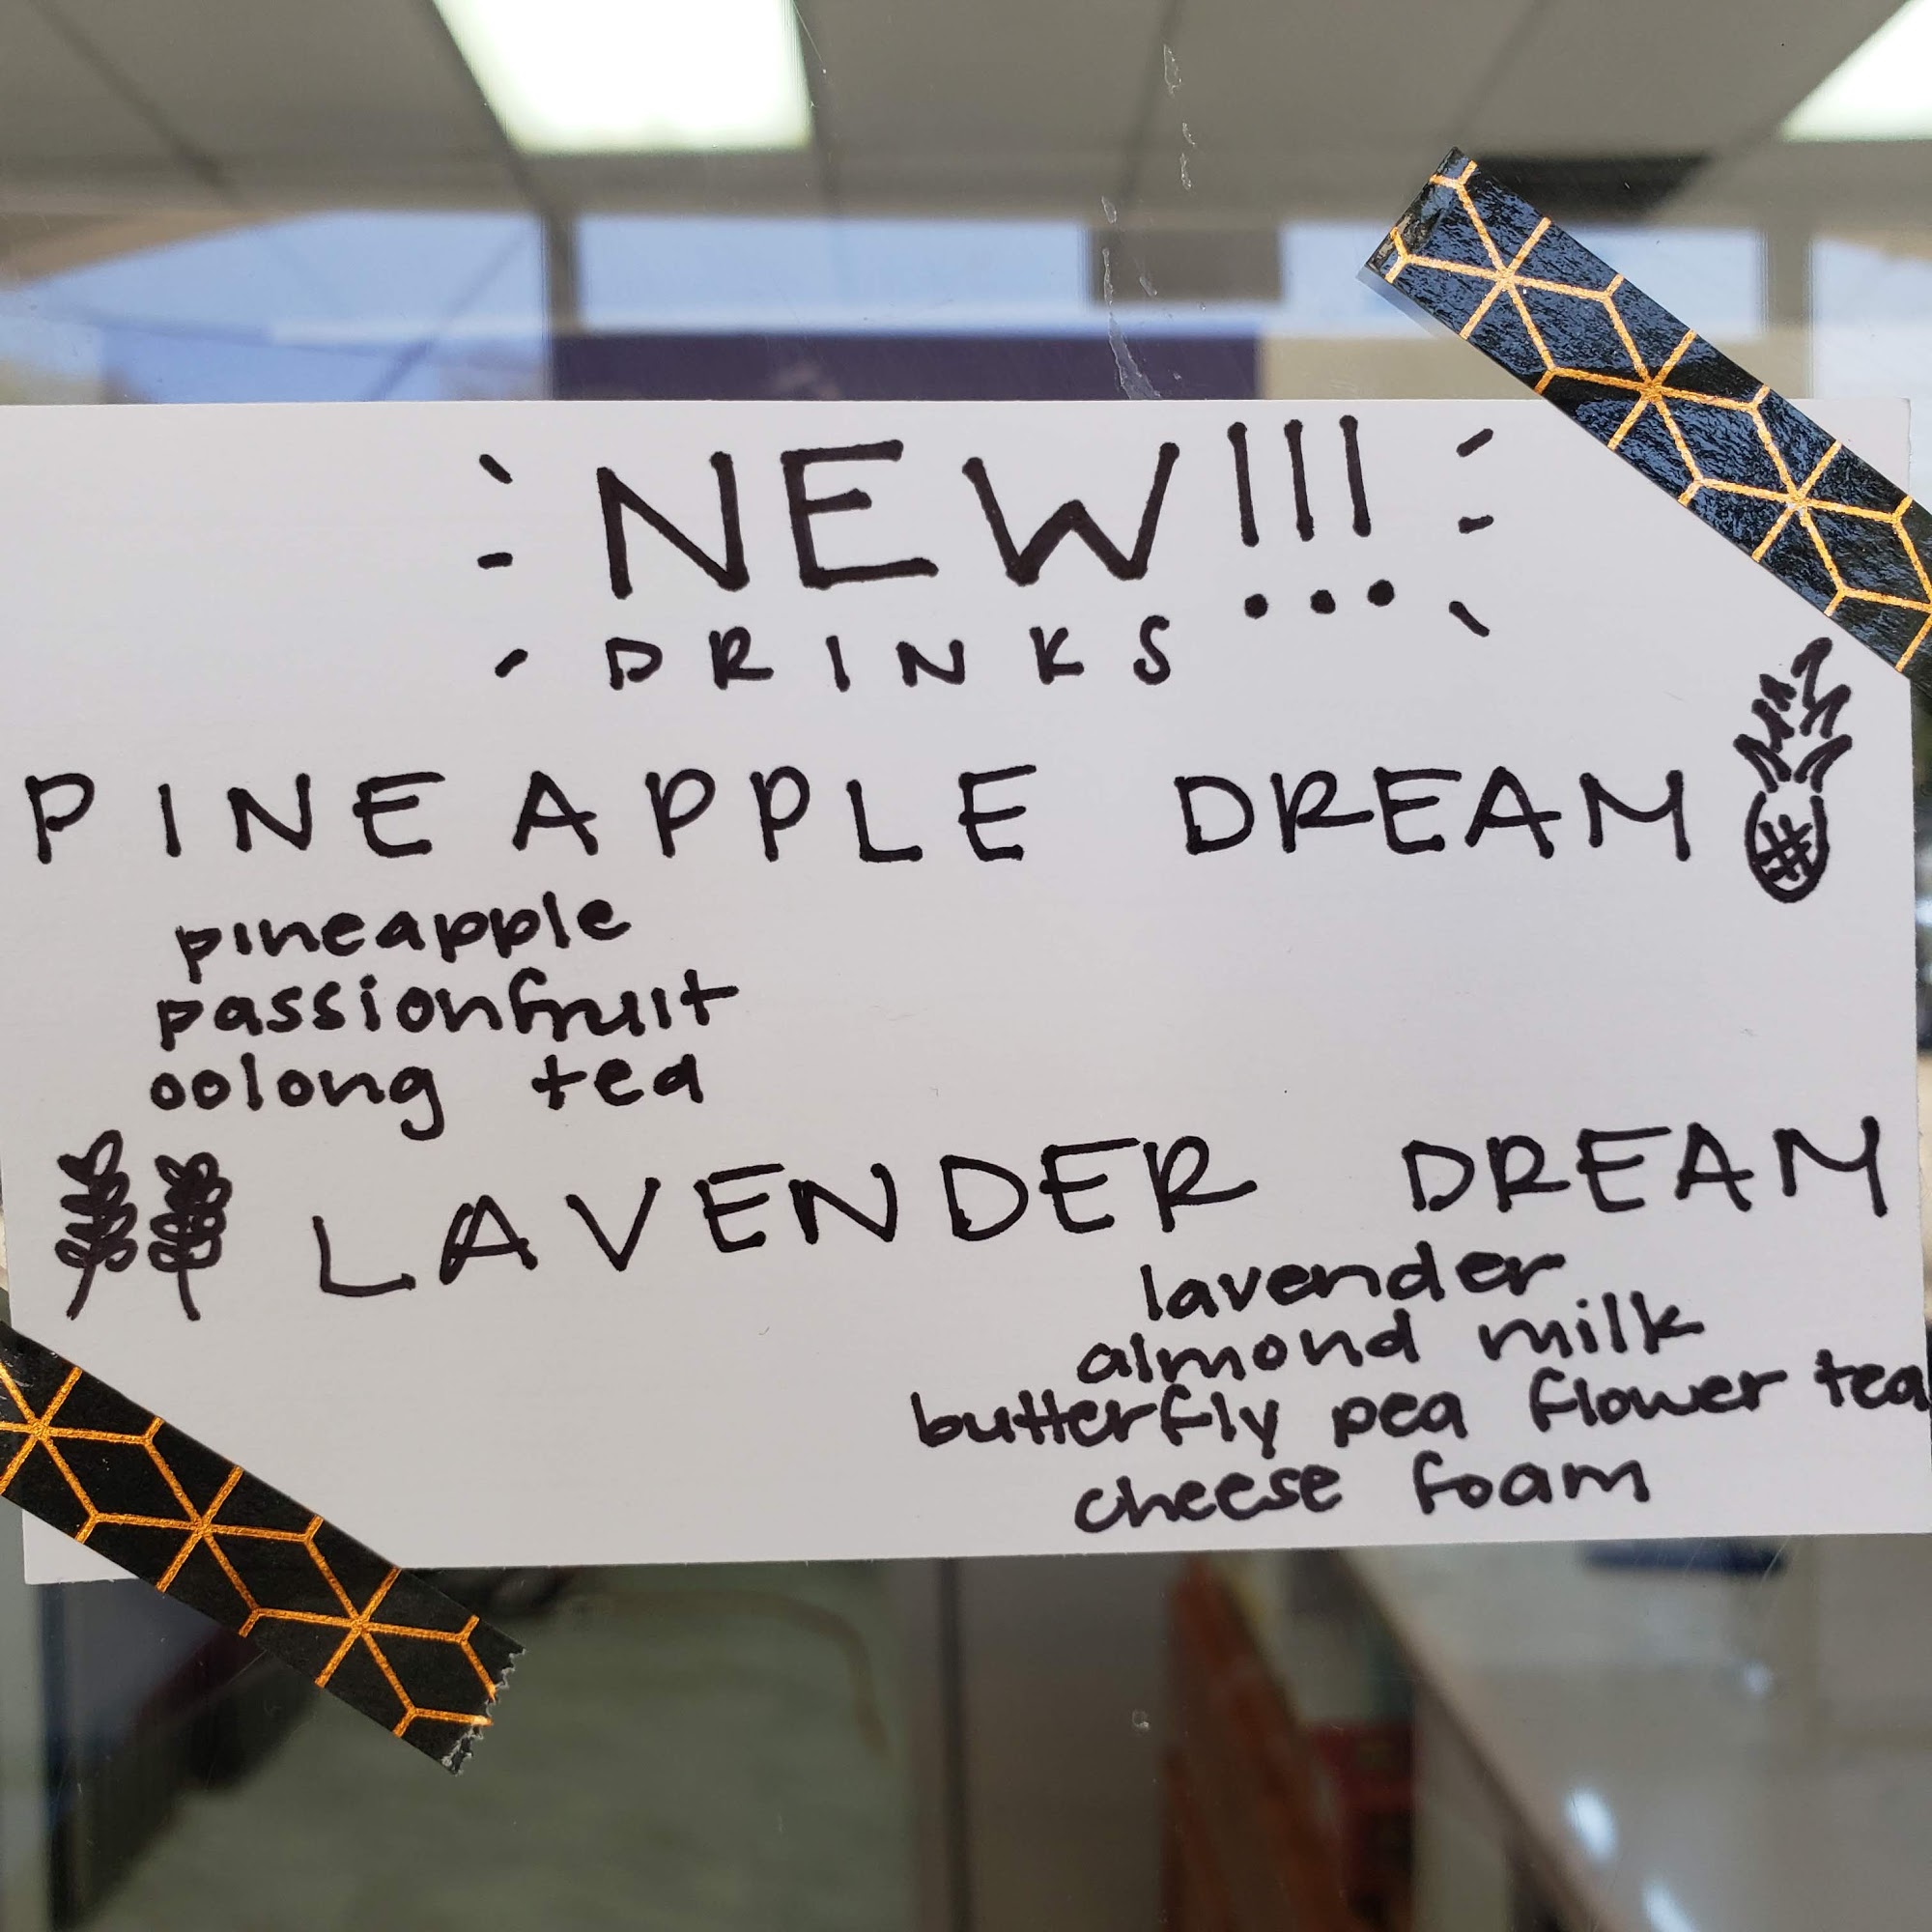 NEW!!!
DRINKS
PINEAPPLE DREAM
pineapple
passionfruit
oolong tea
LAVENDER DREAM
lavender
almond milk
butterfly pea flower tea
cheese foam